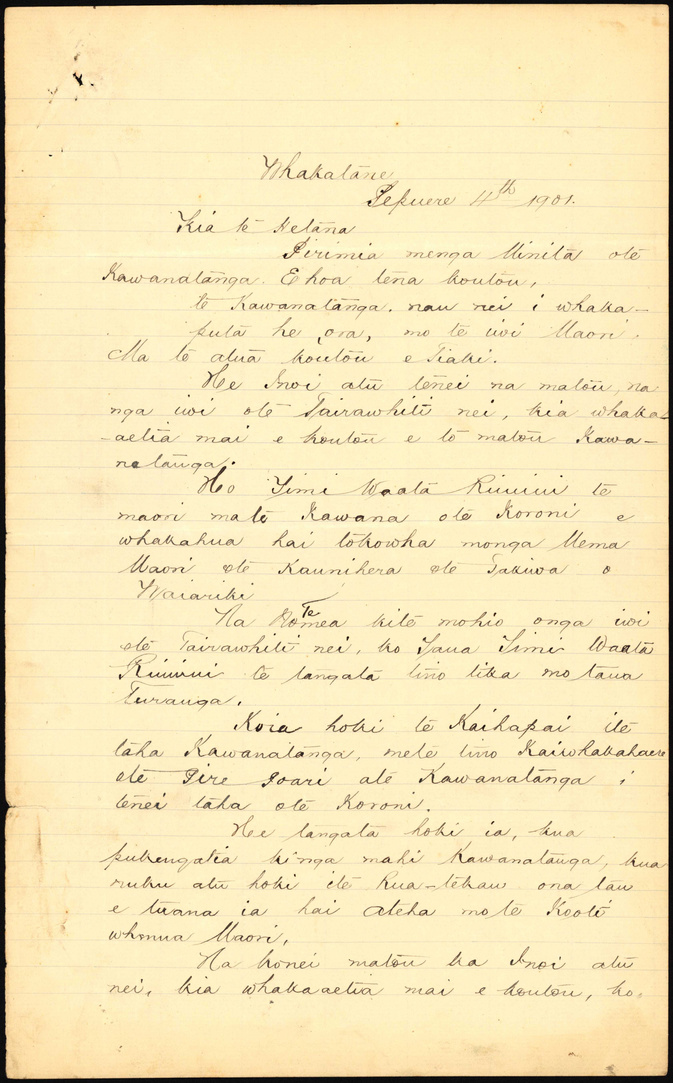 Whakatāne
Pepuere 4th 1901.
Kia te Hetana
Pirimia menga Minita ote
Kawanatanga. E hoa tena koutou,
te Kawanatanga. nau nei i whaka-
puta he ora, mo te iwi Maori.
Ma te atua koutou e Tiaki.
He Inoi atu tenei na matou, na
nga iwi ote Tairawhiti nei, kia whaka-
-aetia mai e koutou e to matou Kawa-
natanga.
Ho Timi Waata Rimini te
maori mate Kawana ote Koroni e
whakahua hai tokowha monga Mema
Maori ote Kaunihera ote Takiwa o
Waiariki
Na Te mea kite mohio onga iwi
ote Tairawhiti nei, ko Taua Timi Waata
Rimini te tangata tino tika mo taua
Turanga.
Koia hoki te Kaihapai ite
taha Kawanatanga, mete tino Kaiwhakahaere
ote Pire Poari ate Kawanatanga i
tenei taha ote Koroni.
Hee tangata hoki ia, kua
pukengatia kinga mahi Kawanatanga, kua
ruku atu hoki ite Rua-tekau ona tau
e tuana ia hai Ateha mo te Kooti
whenua Maori.
Na konei matou ka Inoi atu
nei, kia whakaaetia mai e koutou, ko.